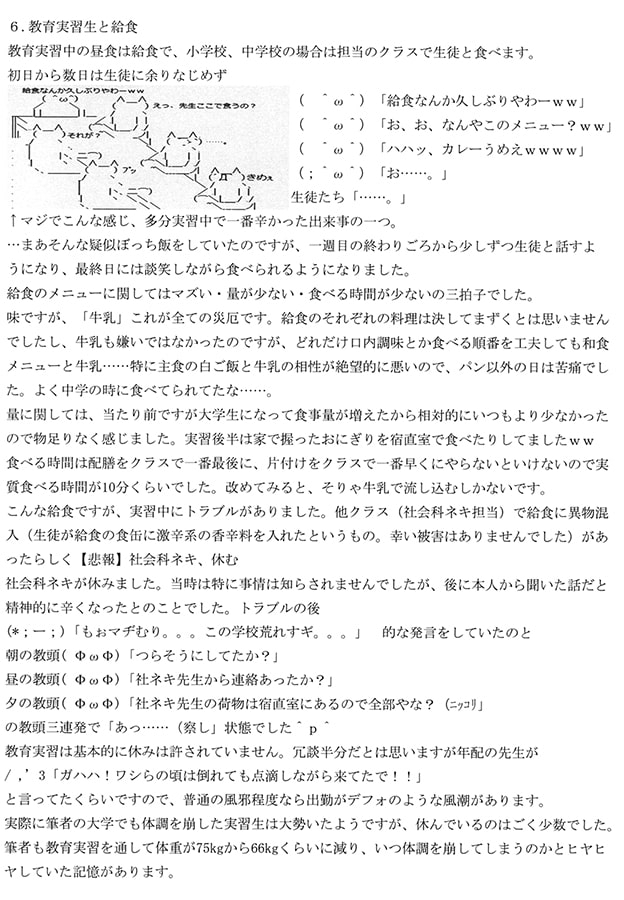 ６．教育実習生と給食
教育実習中の昼食は給食で、小学校、中学校の場合は担当のクラスで生徒と食べます。
初日から数日は生徒に余りなじめず
給食なんか久しぶりやわーｗｗ
(＾ω＾)
えっ、先生ここで食うの？
それが？
……。
プッ
きめぇ
(　＾ω＾)「給食なんか久しぶりやわーｗｗ」
(　＾ω＾)「お、お、なんやこのメニュー？ｗｗ」
(　＾ω＾)「ハハッ、カレーうめえｗｗｗｗ」
(；＾ω＾)「お……。」
生徒たち「……。」
↑マジでこんな感じ、多分実習中で一番辛かった出来事の一つ。
…まあそんな疑似ぼっち飯をしていたのですが、一週目の終わりごろから少しずつ生徒と話すよ
うになり、最終日には談笑しながら食べられるようになりました。
給食のメニューに関してはマズい・量が少ない・食べる時間が少ないの三拍子でした。
味ですが、「牛乳」これが全ての災厄です。給食のそれぞれの料理は決してまずくとは思いません
でしたし、牛乳も嫌いではなかったのですが、どれだけ口内調味とか食べる順番を工夫しても和食
メニューと牛乳……特に主食の白ご飯と牛乳の相性が絶望的に悪いので、パン以外の日は苦痛でし
た。よく中学の時に食べてられてたな……。
量に関しては、当たり前ですが大学生になって食事量が増えたから相対的にいつもより少なかった
ので物足りなく感じました。実習後半は家で握ったおにぎりを宿直室で食べたりしてましたｗｗ
食べる時間は配膳をクラスで一番最後に、片付けをクラスで一番早くにやらないといけないので実
質食べる時間が10分くらいでした。改めてみると、そりゃ牛乳で流し込むしかないです。
こんな給食ですが、実習中にトラブルがありました。他クラス（社会科ネキ担当）で給食に異物混
入（生徒が給食の食缶に激辛系の香辛料を入れたというもの。幸い被害はありませんでした）があ
ったらしく【悲報】社会科ネキ、休む
社会科ネキが休みました。当時は特に事情は知らされませんでしたが、後に本人から聞いた話だと
精神的に辛くなったとのことでした。トラブルの後
(*；ー；)「もぉマヂむり。。。この学校荒れすギ。。。」　的な発言をしていたのと
朝の教頭(　ΦωΦ)「つらそうにしてたか？」
昼の教頭(　ΦωΦ)「社ネキ先生から連絡あったか？」
夕の教頭(　ΦωΦ)「社ネキ先生の荷物は宿直室にあるので全部やな？（ﾆｯｺﾘ」
の教頭三連発で「あっ……（察し）状態でした＾ｐ＾
教育実習は基本的に休みは許されていません。冗談半分だとは思いますが年配の先生が
/ ,' 3「ガハハ！ワシらの頃は倒れても点滴しながら来てたで！！」
と言ってたくらいですので、普通の風邪程度なら出勤がデフォのような風潮があります。
実際に筆者の大学でも体調を崩した実習生は大勢いたようですが、休んでいるのはごく少数でした。
筆者も教育実習を通して体重が75kgから66kgくらいに減り、いつ体調を崩してしまうのかとヒヤヒ
ヤしていた記憶があります。